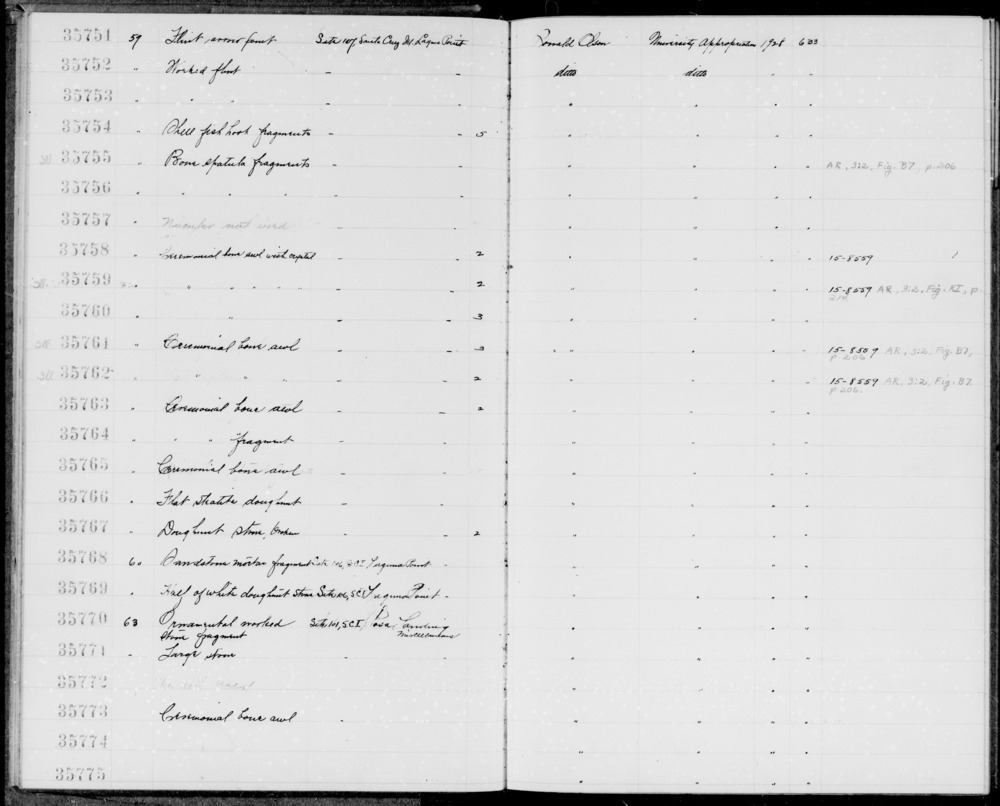 35751 59 Flint arrow point Site 107 Santa Cruz Id. Laguna Point Ronald Olson University Appropriation 1928 633
35752 " Worked flint - - ditto ditto " "
35753 " " " - - " " " "
35754 " Shell fish hook fragments - - 5 " " " "
Ill. 35755 " Bone spatula fragments - - " " " " AR, 3:2, Fig. B7, p. 206
35756 " " " " - - " " " "
35757 Number not used - - " " " "
35758 " Ceremonial bone awl with asphalt - - 2 " " " " 15-8559
Ill. 35759 " " " " " " - - 2 " " " " 15-8559 AR, 3:2, Fig. , p.
35760 " - - 3 " " " "
Ill. 35761 " Ceremonial bone awl - - 3 " " " " 15-8559 AR, 3:2, Fig. B7,
p 206
Ill. 35762 " " " - - 2 " " " " 15-8559 AR, 3:2, Fig. B7
p 206.
35763 " Ceremonial bone awl - - 2 " " " "
35764 " " " fragment - - " " " "
35765 " Ceremonial bone awl - - " " " "
35766 " Flat steatite doughnut - - " " " "
35767 " Doughnut stone, broken - - 2 " " " "
35768 60 Sandstone mortar fragment Site 106, SCI Laguna Point - " " " "
35769 " Half of white doughnut stone Site 106, SCI Laguna Point - " " " "
35770 63 Ornamental worked Site 101, SCI Posa Landing " " " "
stone fragment Miscellaneous
35771 " Large stone - - " " " "
35772 not used " " " "
35773 Ceremonial bone awl - " " " "
35774 " " " "
35775 " " " "